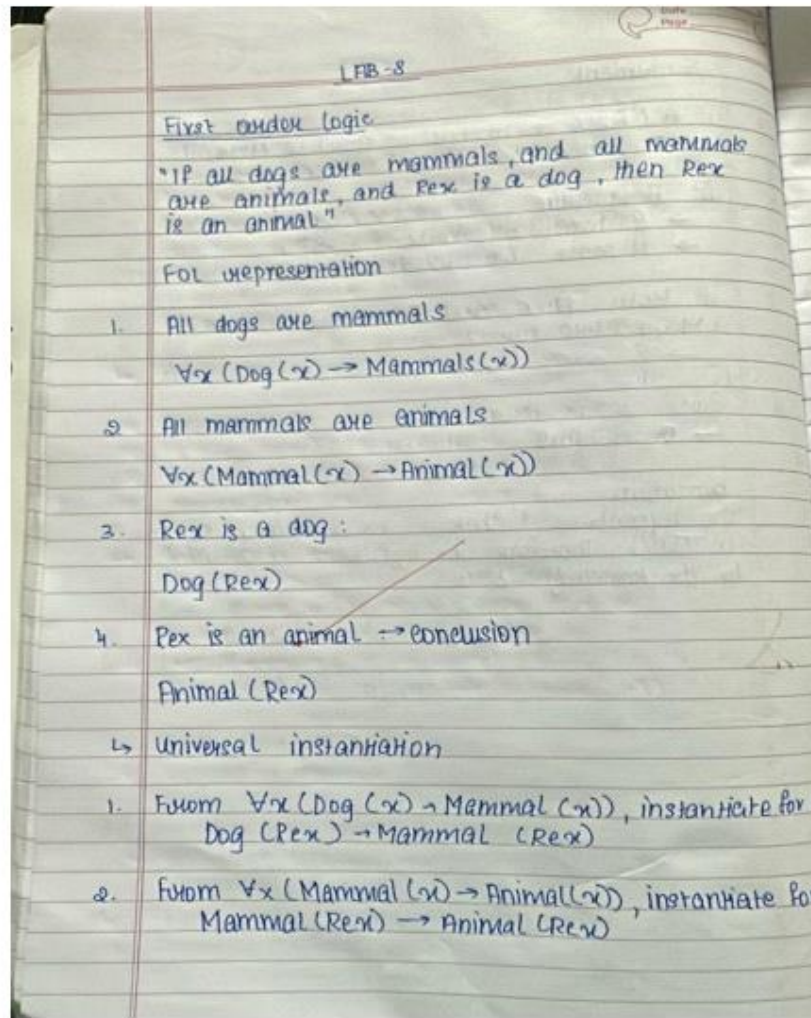 Date
Page
LAB-8
First order logic
"If all dogs are mammals, and all mammals
are animals, and Rex is a dog, then Rex
is an animal"
FOL representation
1. All dogs are mammals
∀x (Dog(x) → Mammals(x))
2 All mammals are animals
∀x (Mammal(x) → Animal(x))
3. Rex is a dog:
Dog (Rex)
4. Rex is an animal → conclusion
Animal (Rex)
↳ Universal instantiation
1. From ∀x (Dog (x) → Mammal (x)), instantiate for
Dog (Rex) → Mammal (Rex)
2. From ∀x (Mammal (x) → Animal(x)), instantiate fo
Mammal (Rex) → Animal (Rex)